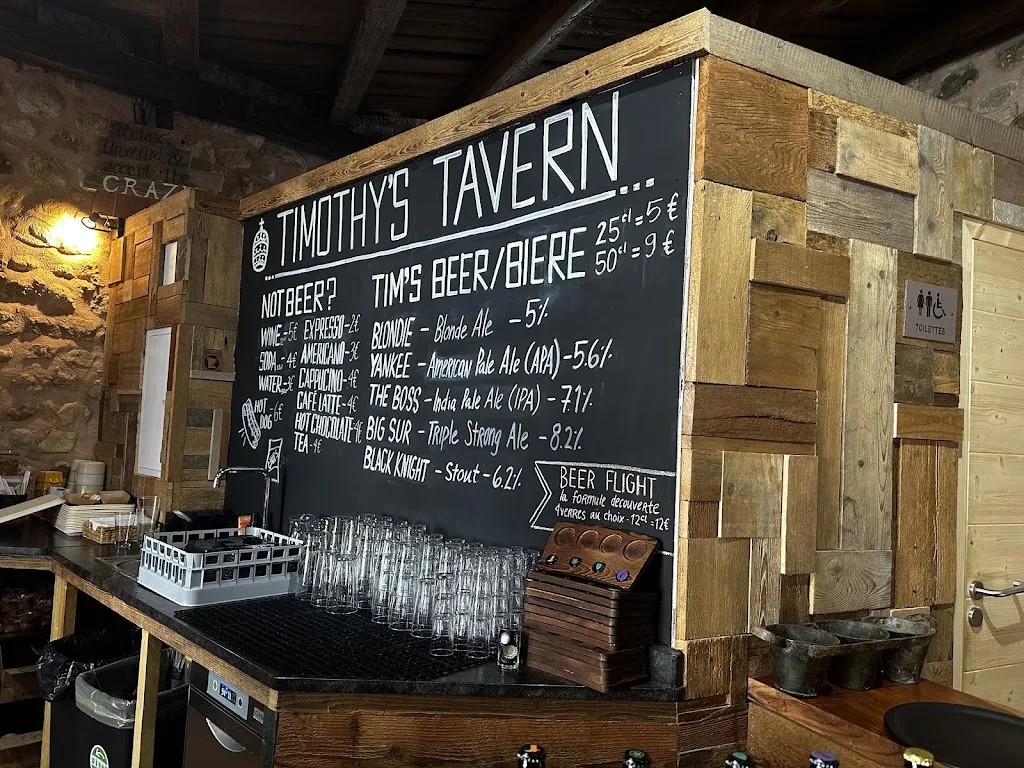 Relax,
Unwind &
CRAZY
TIMOTHY'S TAVERN
NOT BEER?
WINE - 5€
SODA - 4€
WATER - 3€
HOT DOG 6€
EXPRESSO - 2€
AMERICANO - 3€
CAPPUCINO - 4€
CAFE LATTE - 4€
HOT CHOCOLATE - 4€
TEA - 4€
TIM'S BEER/BIERE
25cl = 5€
50cl = 9€
BLONDIE - Blonde Ale - 5%
YANKEE - American Pale Ale (APA) - 5.6%
THE BOSS - India Pale Ale (IPA) - 7.1%
BIG SUR - Triple Strong Ale - 8.2%
BLACK KNIGHT - Stout - 6.2%
BEER FLIGHT
la formule decouverte
4 verres au choix - 12cl = 12€
TOILETTES